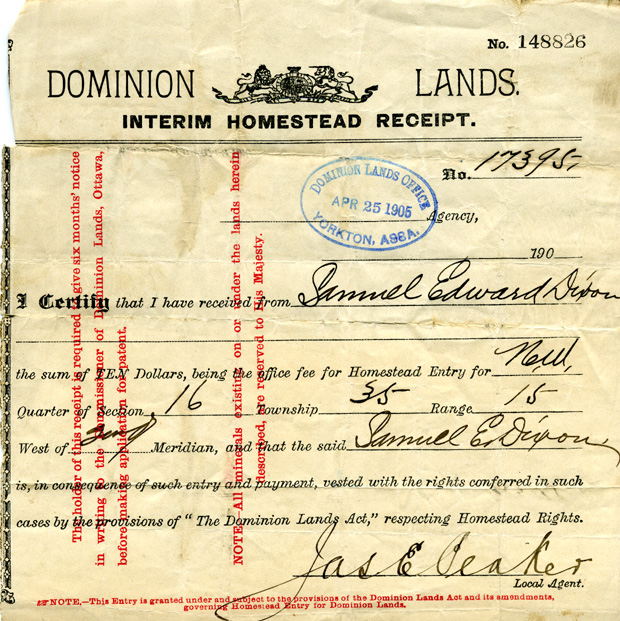 No. 148826
DOMINION LANDS.
INTERIM HOMESTEAD RECEIPT.
No. 17395
DOMINION LANDS OFFICE
APR 25 1905
YORKTON, ASSA.
Agency,
190
I Certify that I have received from Samuel Edward Dixon
the sum of TEN Dollars, being the office fee for Homestead Entry for N.W.
Quarter of Section 16 Township 35 Range 15
West of 2nd Meridian, and that the said Samuel E. Dixon
is, in consequence of such entry and payment, vested with the rights conferred in such
cases by the provisions of "The Dominion Lands Act," respecting Homestead Rights.
Jas E Peaker
Local Agent.
NOTE.—This Entry is granted under and subject to the provisions of the Dominion Lands Act and its amendments,
governing Homestead Entry for Dominion Lands.
The holder of this receipt is required to give six months' notice
in writing to the Commissioner of Dominion Lands, Ottawa,
before making application for patent.
NOTE—All minerals existing on or under the lands herein
described, are reserved to His Majesty.